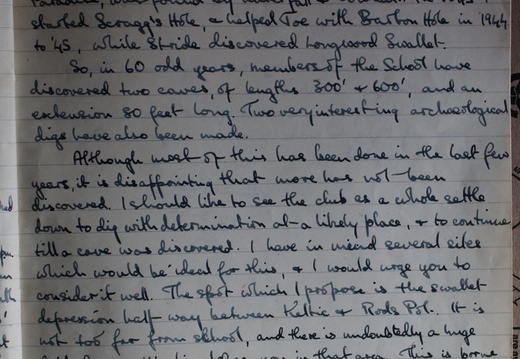 started Scragg's Hole, & helped Joe with Barton Hole in 1944
to '45, while Stride discovered Longwood Swallet.
So, in 60 odd years, members of the School have
discovered two caves, of lengths 300' & 600', and an
extension 80 feet long. Two very interesting archaeological
digs have also been made.
Although most of this has been done in the last few
years, it is disappointing that more has not been
discovered. I should like to see the club as a whole settle
down to dig with determination at a likely place, & to continue
till a cave was discovered. I have in mind several sites
which would be ideal for this, & I would urge you to
consider it well. The spot which I propose is the swallet
depression half way between Keltic & Rods Pot. It is
not too far from school, and there is undoubtedly a huge
in that area. This is borne